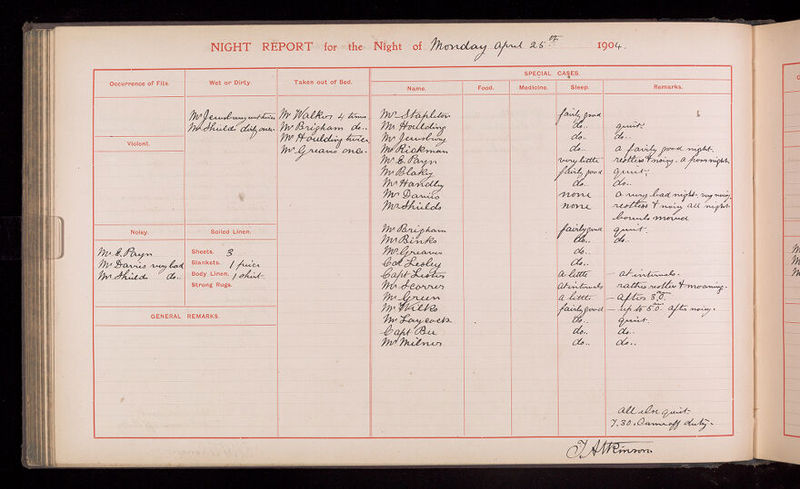 NIGHT REPORT for the Night of Monday April 25th 1904.
Occurrence of Fits.
Wet or Dirty.
Taken out of Bed.
SPECIAL CASES.
Name.
Food.
Medicine.
Sleep.
Remarks.
Mr Jewsbury wet twice
Mr Shields dirty once.
Mr Walker 4 times
Mr Brigham do..
Mr Houlding twice
Mr Greaves once.
Violent.
Noisy.
Mr E. Payn
Mr Davies very bad
Mr Shields do..
Soiled Linen.
Sheets. 3
Blankets. 1 piece
Body Linen. 1 shirt.
Strong Rugs.
GENERAL REMARKS.
Mr Stapleton fairly good
Mr Houlding do.. quiet.
Mr Jewsbury do.. do..
Mr Rickman do.. a fairly good night.
Mr E. Payn very little restless & noisy. a poor night.
Mr Blakey fairly good quiet.
Mr Handley do.. do..
Mr Davies none a very bad night. very noisy.
Mr Shields none restless & noisy all night.
bowels moved
Mr Brigham fairly good quiet.
Mr Binks do.. do..
Mr Greaves do..
Col Lesley do..
Capt a little — at intervals.
Mr at intervals rather restless & moaning.
Mr Green a little — after 3.0.
Mr Wilks fairly good — up to 5.0. after noisy.
Mr Laycock do.. quiet.
Capt do.. do..
Mr Milner do.. do..
All else quiet
7.30. Came off duty.
J Atkinson